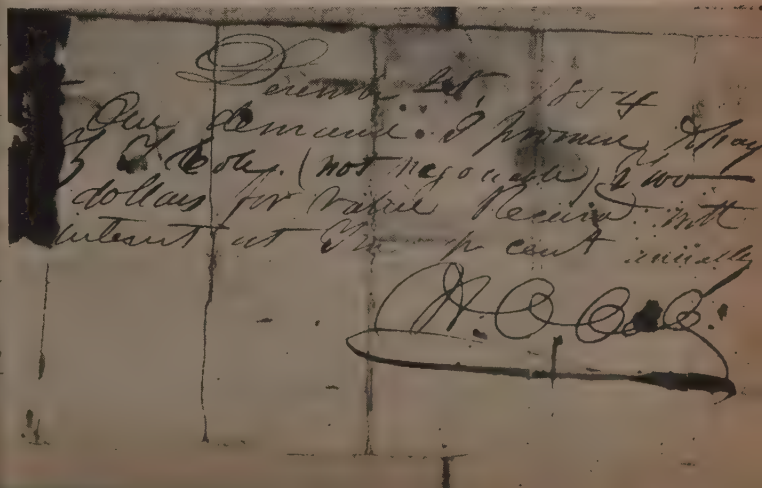 December 28, 1854
On demand I promise to pay
(not negotiable) Two
dollars for value Received with
interest at per cent annually